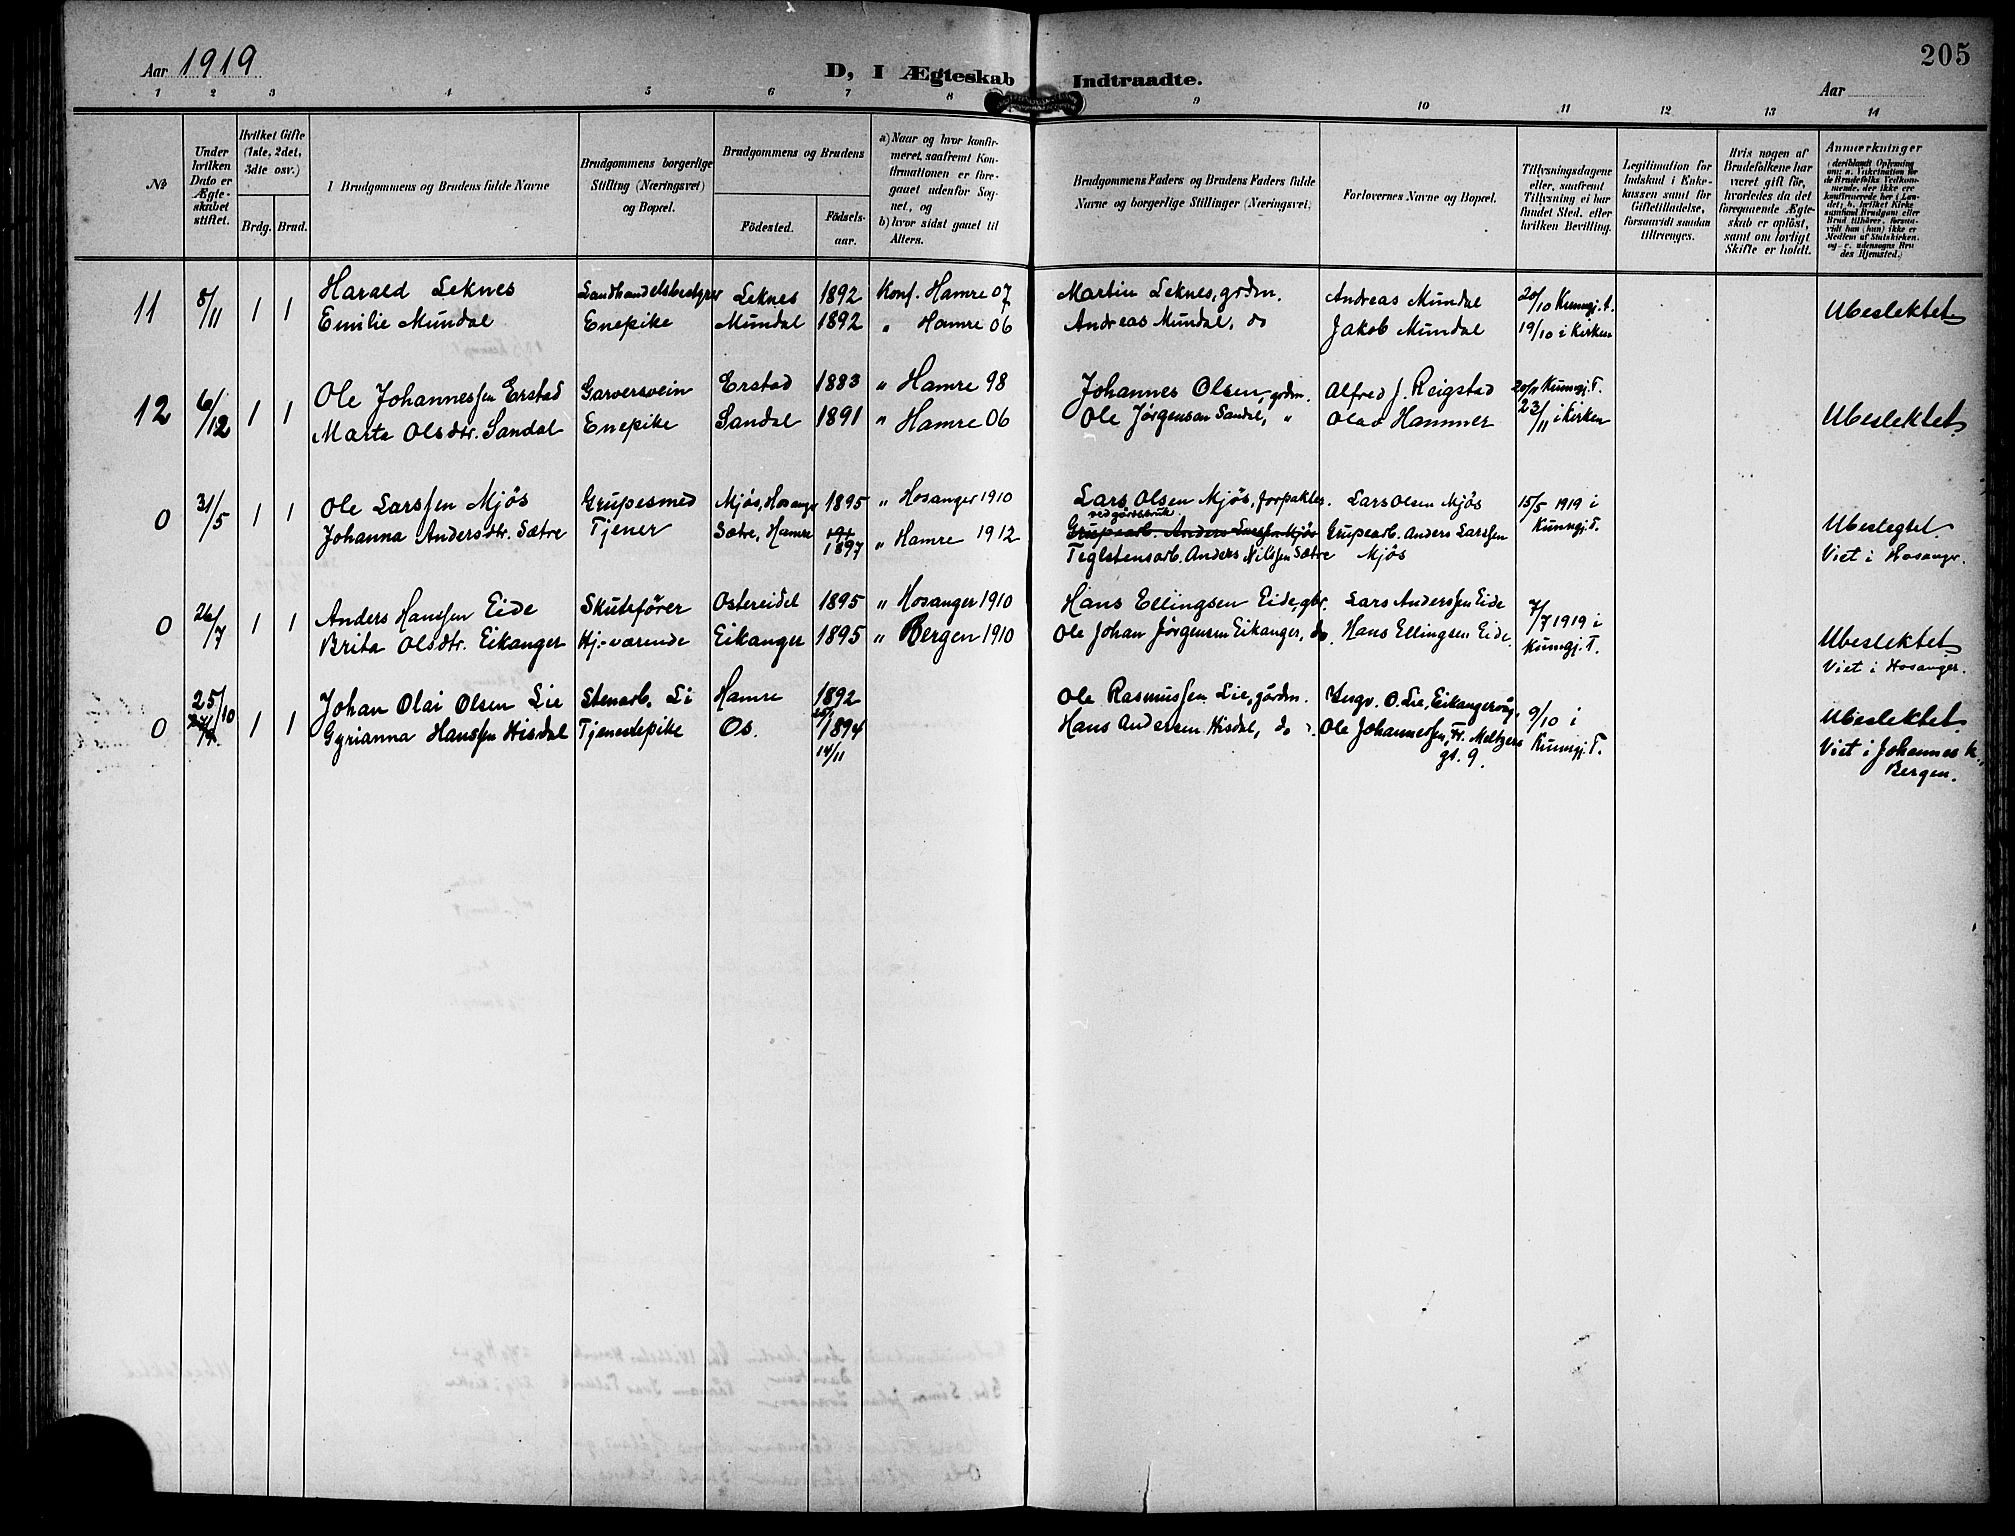 Aar 1919
D, I Ægteskab Indtraadte.
205
Aar
1 2 3 4 5 6 7 8 9 10 11 12 13 14
No
Under hvilken Dato er Ægteskabet stiftet.
Hvilket Gifte (1ste, 2det, 3die osv.)
Brdg. Brud.
I Brudgommens og Brudens fulde Navne
Brudgommens borgerlige Stilling (Næringsvei) og Bopæl.
Brudgommens og Brudens
Fødested.
Fødselsaar.
a) Naar og hvor konfirmeret, saafremt Konfirmationen er foregaaet udenfor Sognet, og
b) hvor sidst gaaet til Alters.
Brudgommens Faders og Brudens Faders fulde Navne og borgerlige Stillinger (Næringsvei)
Forlovernes Navne og Bopæl.
Tillysningsdagene eller, saafremt Tillysning ei har fundet Sted, efter hvilken Bevilling.
Legitimation for Indskud i Enkekassen samt for Giftetilladelse, forsaavidt saadan tiltrænges.
Hvis nogen af Brudefolkene har været gift før, hvorledes da det foregaaende Ægteskab er opløst, samt om lovligt Skifte er holdt.
Anmærkninger
(deriblandt Oplysning om: a. Vakcination for de Brudefolks Vedkommende, der ikke ere konfirmerede her i Landet, b. hvilket Kirkesamfund Brudgom eller Brud tilhører, forsaavidt han (hun) ikke er Medlem af Statskirken, og c. udensogns Brudes Hjemsted.)
11 8/11 1 1 Harald Leknes Landhandelsbestyrer Leknes 1892 Konf. Hamre 07 Martin Leknes, grdm. Andreas Mundal 20/10 Kunngj. t.
Emilie Mundal Enepike Mundal 1892 " Hamre 06 Andreas Mundal, do Jakob Mundal 19/10 i Kirken Ubeslektet
12 6/12 1 1 Ole Johannessen Erstad Garversvein Erstad 1883 " Hamre 98 Johannes Olsen, grdm. Alfred J. Reigstad 20/11 Kunngj. T.
Marta Olsdtr. Sandal Enepike Sandal 1891 " Hamre 06 Ole Jørgensen Sandal, " Olav Hammer 23/11 i Kirken Ubeslektet
0 31/5 1 1 Ole Larssen Mjøs Grupesmed Mjøs, Hosanger 1895 " Hosanger 1910 Lars Olsen Mjøs, forpakter Lars Olsen Mjøs 15/5 1919 i
ved gårdsbruk
Johanna Andersdtr. Sætre Tjener Sætre, Hamre 1897 " Hamre 1912 Grupearb. Anders Larssen Mjøs Grupearb. Anders Larssen Kunngj. T. Ubeslegtet
Teglstensarb. Anders Nilssen Sætre Mjøs Viet i Hosangr.
0 26/7 1 1 Anders Hanssen Eide Skutefører Ostereidet 1895 " Hosanger 1910 Hans Ellingsen Eide, gbr. Lars Anderssen Eide 7/7 1919 i
Brita Olsdtr. Eikanger Hj:værende Eikanger 1895 " Bergen 1910 Ole Johan Jørgensen Eikanger, do. Hans Ellingsen Eide. Kunngj. T. Ubeslektet
Viet i Hosanger.
0 25/10 1 1 Johan Olai Olsen Lie Stenarb. Li Hamre 1892 Ole Rasmussen Lie, gårdm. O. Lie, Eikangervåg, 9/10 i
Gyrianna Hanssen Hisdal Tjenestepike Os. 1894 Hans Andersen Hisdal, do. Ole Johannessen, Fr. Meltzers Kunngj. T. Ubeslektet
14/11 gt. 9. Viet i Johannes k.,
Bergen.